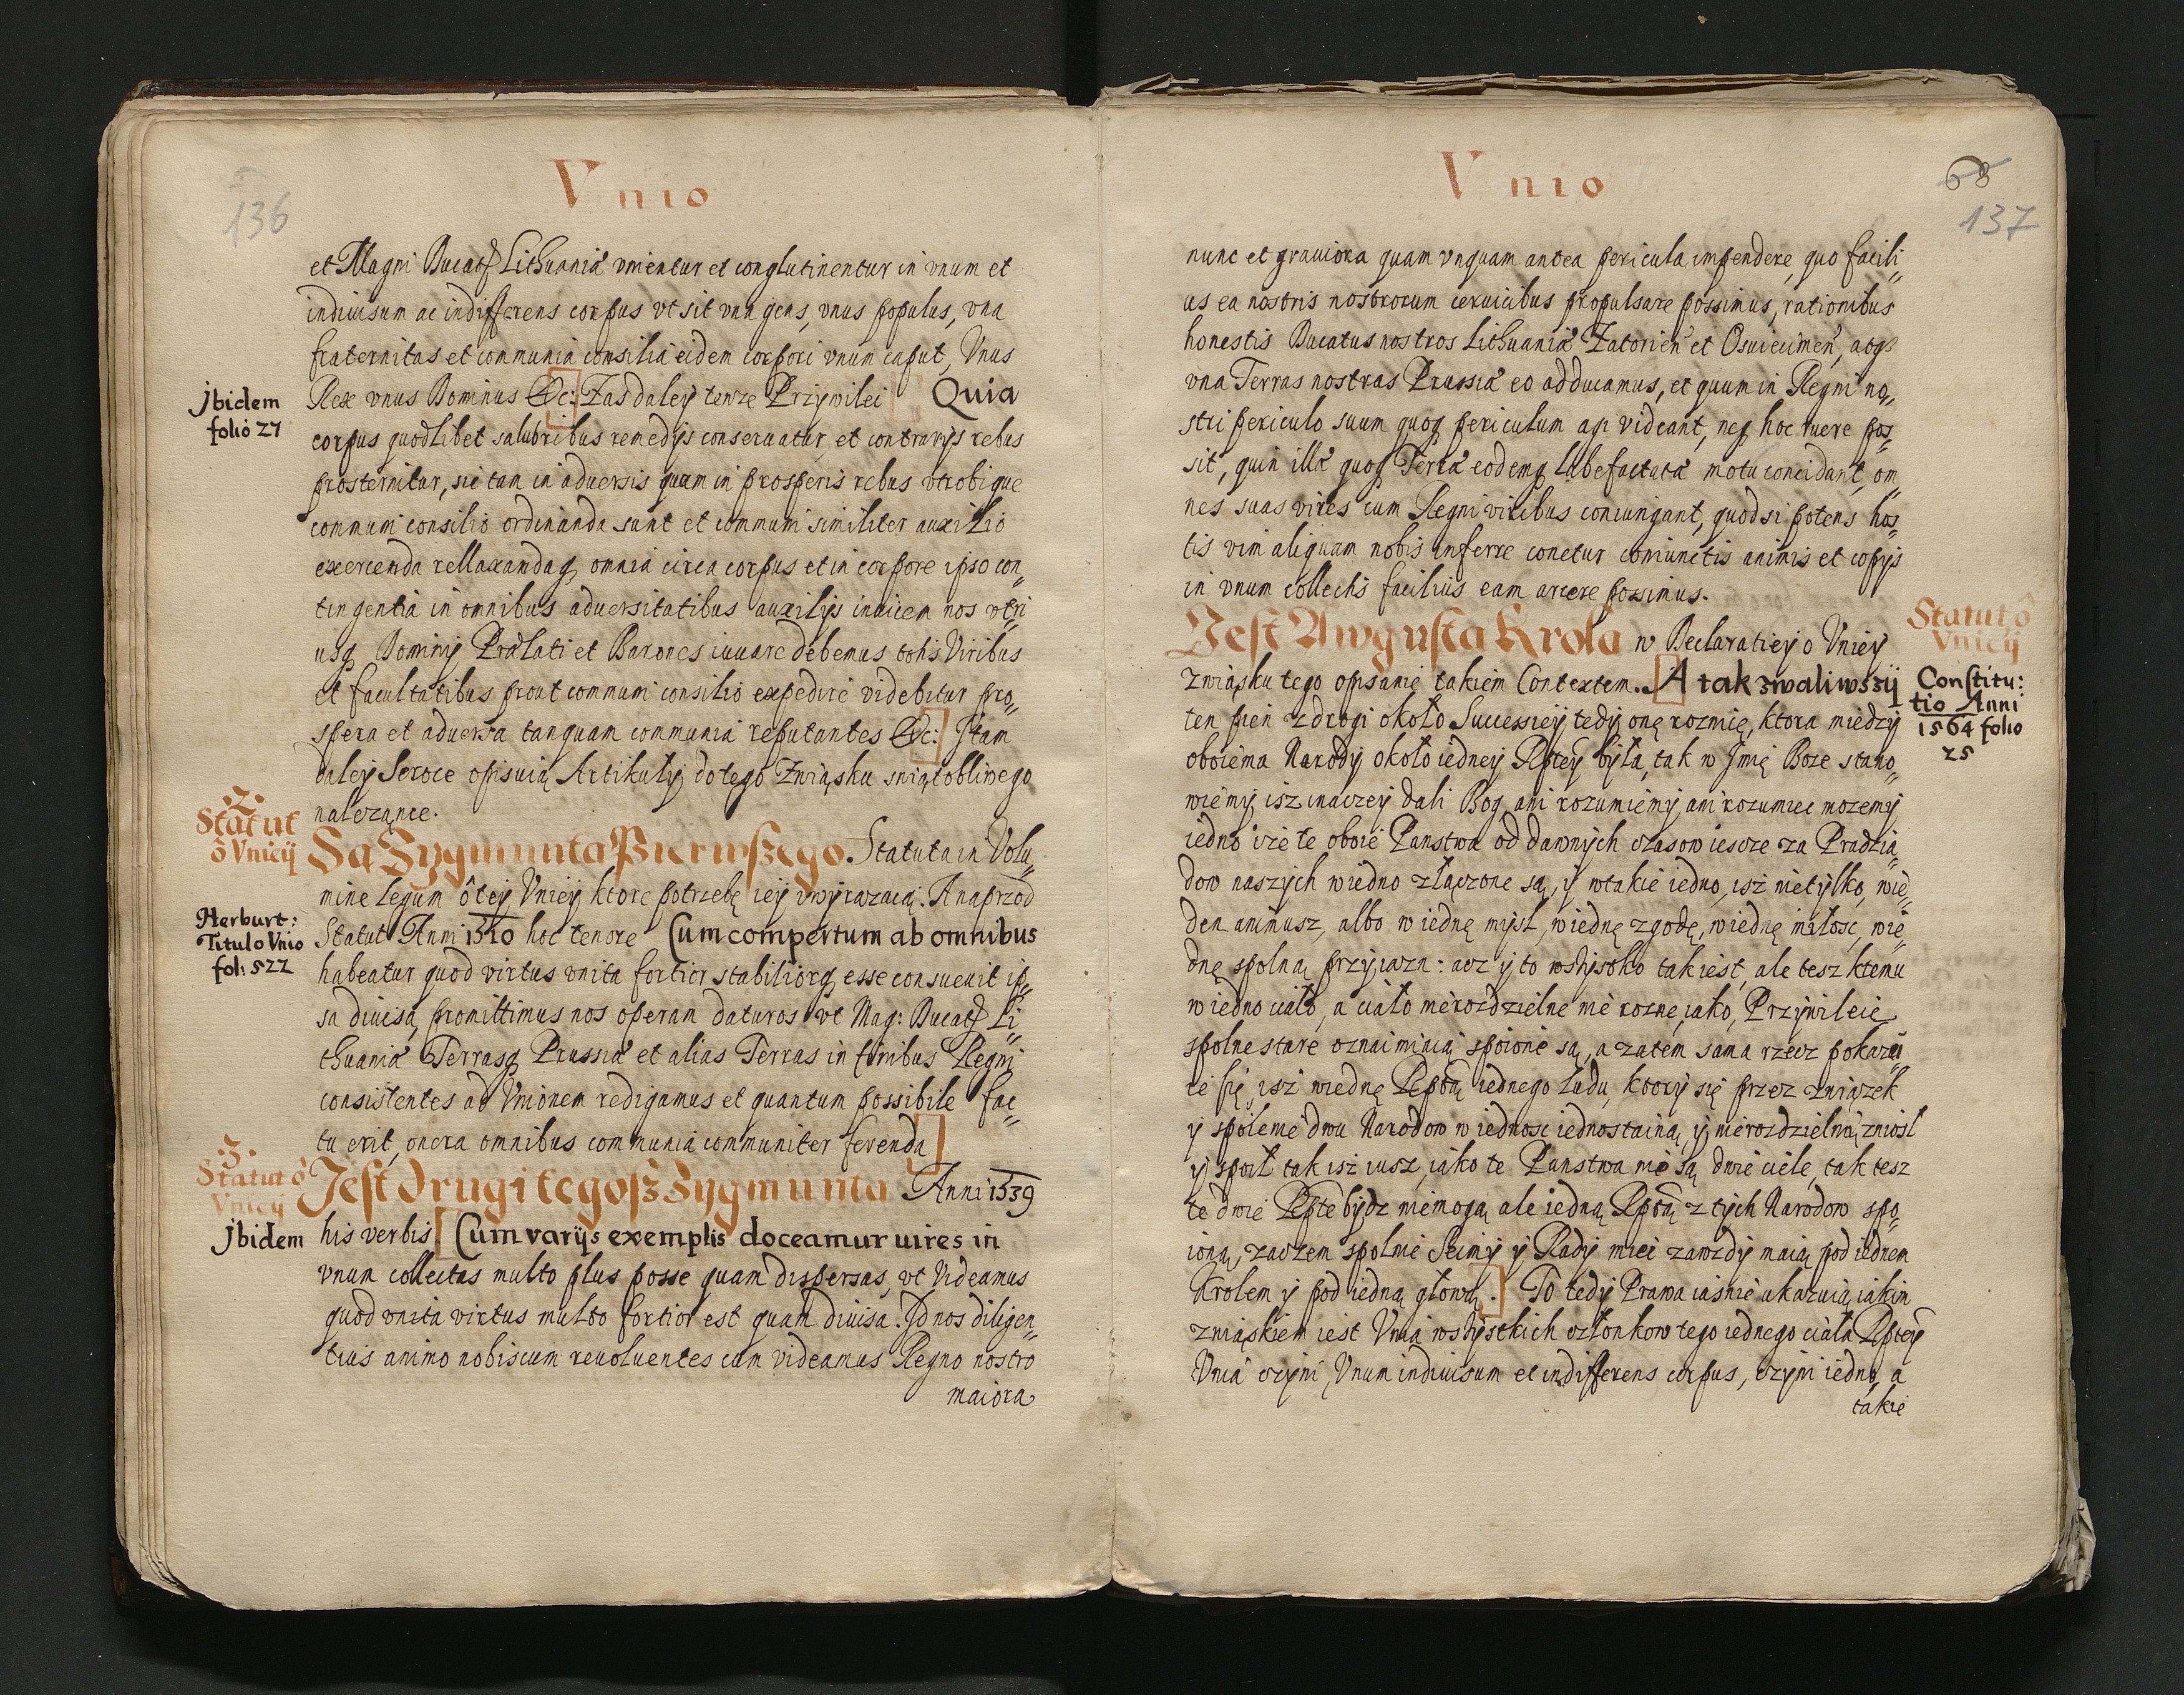 136
Vnio
et Magni Ducatꝯ Lithuaniæ vnientur et conglutinentur in vnum et
indiuisum ac indifferens corpus vt sit vna gens, vnus populus, vna
fraternitas et communia consilia eidem corpori vnum caput, Vnus
Rex vnus Dominus &c: Zas daley tenze Przywilei Quia
Jbidem
folio 27
corpus quodlibet salubribus remedijs conseruatur, et contrarijs rebus
prosternitur, sic tam in aduersis quam in prosperis rebus vtrobique
communi consilio ordinanda sunt et communi similiter auxilio
exercenda rellaxandaq; omnia circa corpus et in corpore ipso con„
tingentia in omnibus aduersitatibus auxilijs inuicem nos vtri
usq; Dominij Prælati et Barones iuuare debemus totis Viribus
et facultatibus prout communi consilio expedire videbitur pro„
spera et aduersa tanquam communia reputantes &c: Jtam
daley Seroce opisuią Artikuły do tego Związku swiątobliwego
nalezące.
.2.
Statut
o Vnicij
Sa Zygmunta Pierwszego. Statuta in Volu„
mine Legum ô tey Vniey ktore potrzebę iey wyrazaią. A naprzod
Herburt:
Titulo Vnio
fol: 522
Statut Anni 1510 hoc tenore Cum compertum ab omnibus
habeatur quod virtus vnita fortior stabiliorq; esse consueuit ip„
sa diuisa, promittimus nos operam daturos vt Mag: Ducatꝯ Li„
thuaniæ Terrasq; Prussiæ et alias Terras in finibus Regni
consistentes ad Vnionem redigamus et quantum possibile fac„
tu erit, onera omnibus communia communiter ferenda
.3.
Statut ô
Vnicij
Jest drugi tegosz Zygmunta Anni 1539
Jbidem
his verbis Cum varijs exemplis doceamur uires in
vnum collectas multo plus posse quam dispersas, vt Videamus
quod vnita virtus multo fortior est quam diuisa. Jd nos diligen„
tius animo nobiscum reuoluentes cum videamus Regno nostro
maiora
68
137
Vnio
nunc et grauiora quam vnquam antea pericula impendere, quo facili„
us ea nostris nostrorum ceruicibus propulsare possimus, rationibus
honestis Ducatus nostros Lithuaniæ Zatorien et Osuiecimen, atqз
vna Terras nostras Prussiæ eo adducamus, et quum in Regni no„
stri periculo suum quoq; periculum agi videant, neq; hoc ruere pos„
sit, quin illæ quoq; Terræ eodemq; labefactatæ motu concidant, om
nes suas vires cum Regni viribus coniungant, quod si potens hos„
tis vim aliquam nobis inferre conetur coniunctis animis et copijs
in vnum collectis facilius eam arcere possimus.
Statut ô
Vnicij
Jest Awgusta Krola w Declaratiey o Vniey
związku tego opisanie takiem Contextem. A tak zwaliwszij
Constitu:
tio Anni
1564 folio
25
ten pień z drogi około Successiey tedy onę roznię, ktora między
oboiema Narody około iedney Rptey była, tak w Jmię Boze stano„
wiemy, isz inaczey dali Bog ani rozumiemy ani rozumiec mozemy
iedno isz te oboie Panstwa od dawnych czasow iescze za Pradzia„
dow naszych wiedno złączone są, y wtakie iedno, isz nietylko, wie„
den animusz, albo w iednę mysl, wiednę zgodę, wiednę miłosc, wie„
dnę spolną przyiazn: acz y to wszystko tak iest, ale tesz ktemu
w iedno ciało, a ciało nierozdzielne nie rozne, iako, Przywileie
spolne stare oznaimiaią spoione są, a zatem sama rzecz pokazu
ie się, isz wiednę Rptą iednego Ludu, ktory się przez związek
y spoienie dwu Narodow w iednosc iednostainą, y nierozdzielną zniosł
y spoił tak isz iusz, iako te Panstwa nie są dwie ciele, tak tesz
te dwie Rpte bydz niemogą ale iedną Rptą z tych Narodow spo„
ioną, zaczem spolnie Seimy y Rady miec zawzdy maią pod iednem
Krolem y pod iedną głową. To tedy Prawa iasnie ukazuią iakim
związkiem iest Vnia wszystkich członkow tego iednego ciała Rptey
Vnia czyni, Vnum indiuisum et indifferens corpus, czyni iedno, a
takie